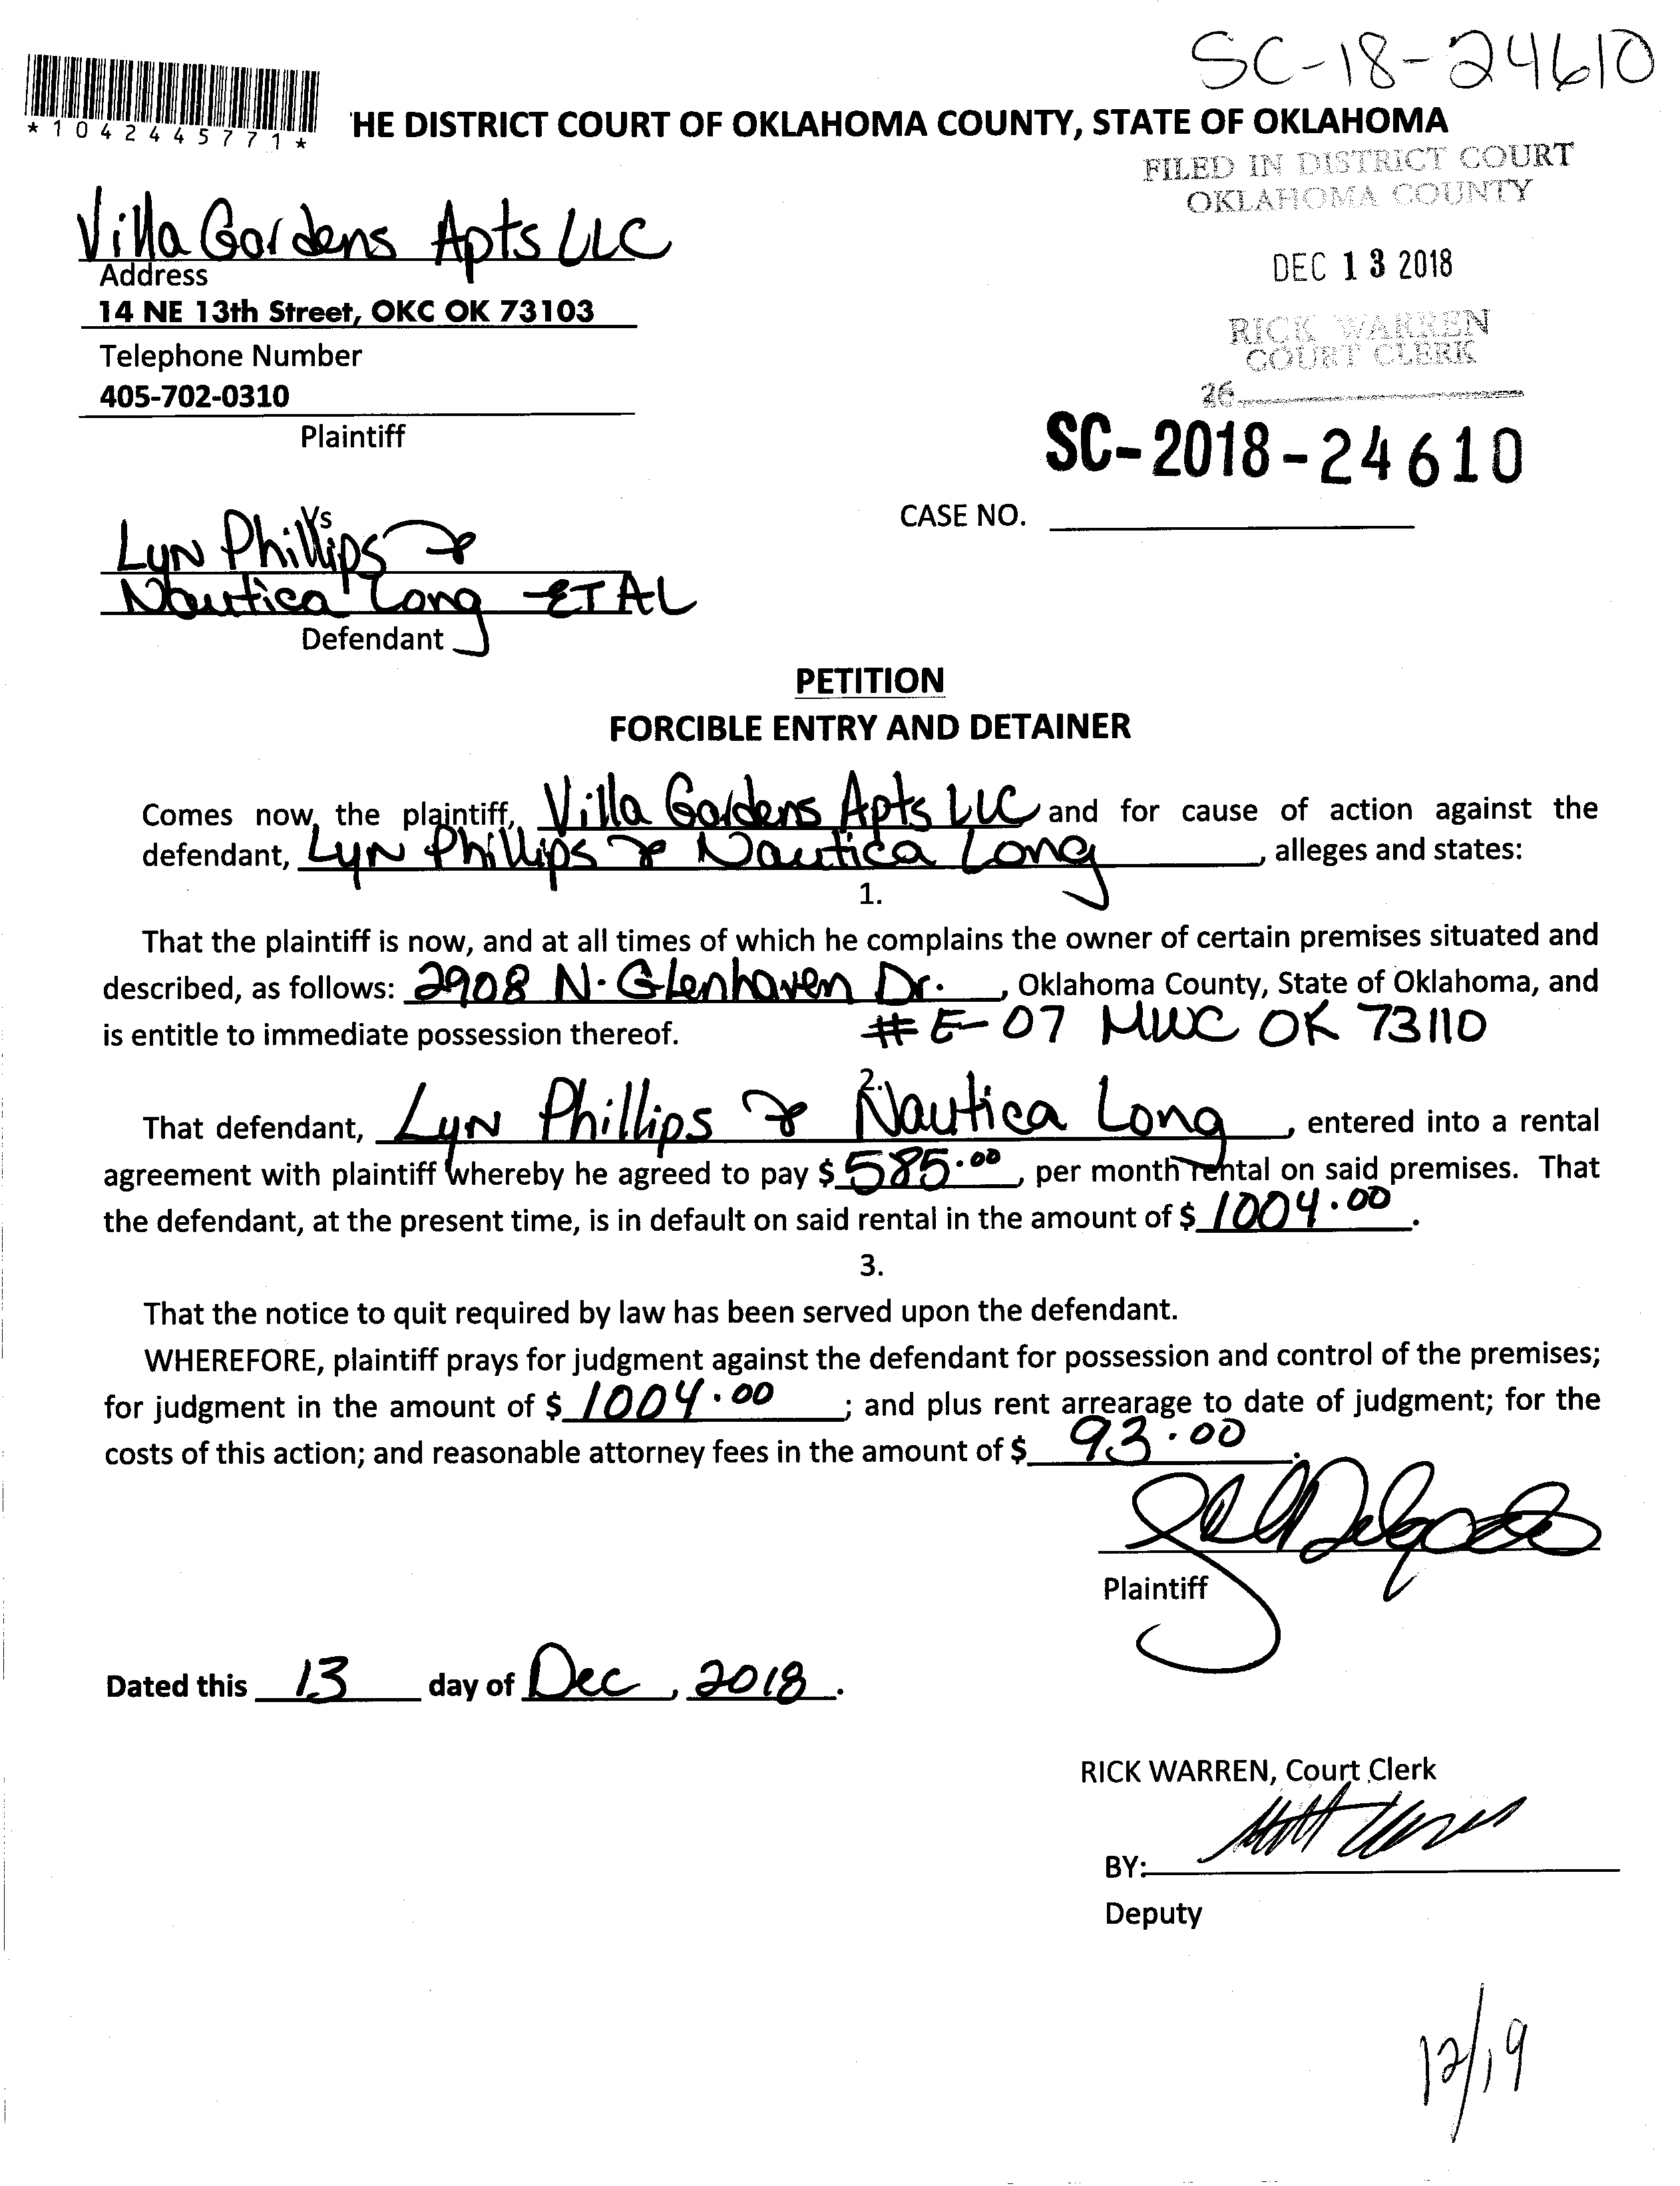 SC-18-24610
*1042445771*
'HE DISTRICT COURT OF OKLAHOMA COUNTY, STATE OF OKLAHOMA
FILED IN DISTRICT COURT
OKLAHOMA COUNTY
Villa Gardens Apts LLC
Address
DEC 13 2018
14 NE 13th Street, OKC OK 73103
RICK WARREN
COURT CLERK
Telephone Number
405-702-0310
26
Plaintiff
SC-2018-24610
CASE NO.
Vs
Lyn Phillips &
Nautica Long ET AL
Defendant
PETITION
FORCIBLE ENTRY AND DETAINER
Comes now, the plaintiff, Villa Gardens Apts LLC and for cause of action against the
defendant, Lyn Phillips & Nautica Long, alleges and states:
1.
That the plaintiff is now, and at all times of which he complains the owner of certain premises situated and
described, as follows: 2908 N. Glenhaven Dr., Oklahoma County, State of Oklahoma, and
is entitle to immediate possession thereof. #E-07 MWC OK 73110
2.
That defendant, Lyn Phillips & Nautica Long, entered into a rental
agreement with plaintiff whereby he agreed to pay $ 585.00, per month rental on said premises. That
the defendant, at the present time, is in default on said rental in the amount of $ 1004.00.
3.
That the notice to quit required by law has been served upon the defendant.
WHEREFORE, plaintiff prays for judgment against the defendant for possession and control of the premises;
for judgment in the amount of $ 1004.00; and plus rent arrearage to date of judgment; for the
costs of this action; and reasonable attorney fees in the amount of $ 93.00.
Delgado
Plaintiff
Dated this 13 day of Dec, 2018.
RICK WARREN, Court Clerk
BY:
Deputy
12/19